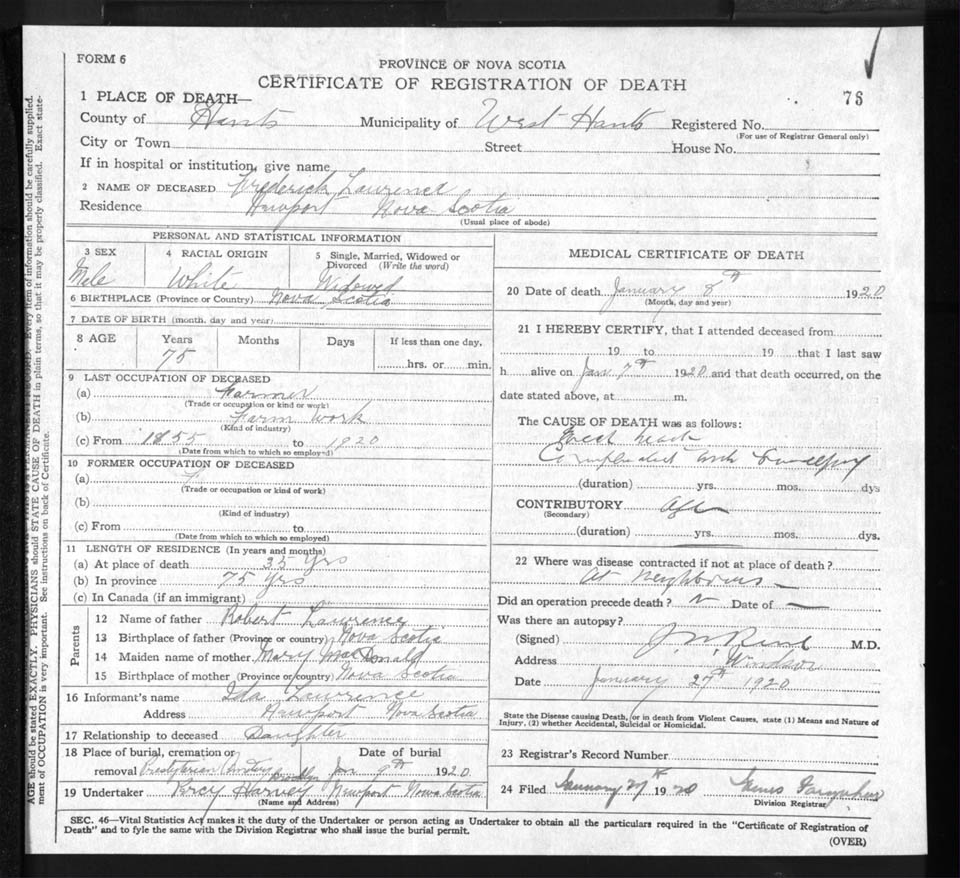 FORM 6
PROVINCE OF NOVA SCOTIA
CERTIFICATE OF REGISTRATION OF DEATH
76
1 PLACE OF DEATH—
County of Hants Municipality of West Hants Registered No.
(For use of Registrar General only)
City or Town Street House No.
If in hospital or institution, give name
2 NAME OF DECEASED Frederick Lawrence
Residence Newport Nova Scotia
(Usual place of abode)
PERSONAL AND STATISTICAL INFORMATION
3 SEX 4 RACIAL ORIGIN 5 Single, Married, Widowed or Divorced (Write the word)
Male White Widowed
6 BIRTHPLACE (Province or Country) Nova Scotia
7 DATE OF BIRTH (month, day and year)
8 AGE Years Months Days If less than one day.
75 hrs. or min.
9 LAST OCCUPATION OF DECEASED
(a) Farmer
(Trade or occupation or kind or work)
(b) Farm work
(Kind of industry)
(c) From 1855 to 1920
(Date from which to which so employed)
10 FORMER OCCUPATION OF DECEASED
(a)
(Trade or occupation or kind of work)
(b)
(Kind of industry)
(c) From to
(Date from which to which so employed)
11 LENGTH OF RESIDENCE (In years and months)
(a) At place of death 35 Yrs
(b) In province 75 Yrs
(c) In Canada (if an immigrant)
Parents
12 Name of father Robert Lawrence
13 Birthplace of father (Province or country) Nova Scotia
14 Maiden name of mother Mary MacDonald
15 Birthplace of mother (Province or country) Nova Scotia
16 Informant's name Ida Lawrence
Address Newport Nova Scotia
17 Relationship to deceased Daughter
18 Place of burial, cremation or Date of burial
removal Presbyterian Brooklyn Jan 9th 1920
19 Undertaker Percy Harvey Newport Nova Scotia
(Name and Address)
MEDICAL CERTIFICATE OF DEATH
20 Date of death January 8th 1920
(Month, day and year)
21 I HEREBY CERTIFY, that I attended deceased from
19 to 19 that I last saw
h alive on Jan 7th 1920 and that death occurred, on the
date stated above, at m.
The CAUSE OF DEATH was as follows:
(duration) yrs. mos. dys
CONTRIBUTORY Age
(Secondary)
(duration) yrs. mos. dys.
22 Where was disease contracted if not at place of death?
At Neighbours
Did an operation precede death? N Date of —
Was there an autopsy?
(Signed) M.D.
Address Windsor
Date January 27th 1920
State the Disease causing Death, or in death from Violent Causes, state (1) Means and Nature of
Injury, (2) whether Accidental, Suicidal or Homicidal.
23 Registrar's Record Number
24 Filed January 27th 1920
Division Registrar
SEC. 46—Vital Statistics Act makes it the duty of the Undertaker or person acting as Undertaker to obtain all the particulars required in the "Certificate of Registration of
Death" and to fyle the same with the Division Registrar who shall issue the burial permit.
(OVER)
AGE should be stated EXACTLY. PHYSICIANS should STATE CAUSE OF DEATH in plain terms, so that it may be properly classified. Exact state-
ment of OCCUPATION is very important. See instructions on back of Certificate.
Every item of information should be carefully supplied.